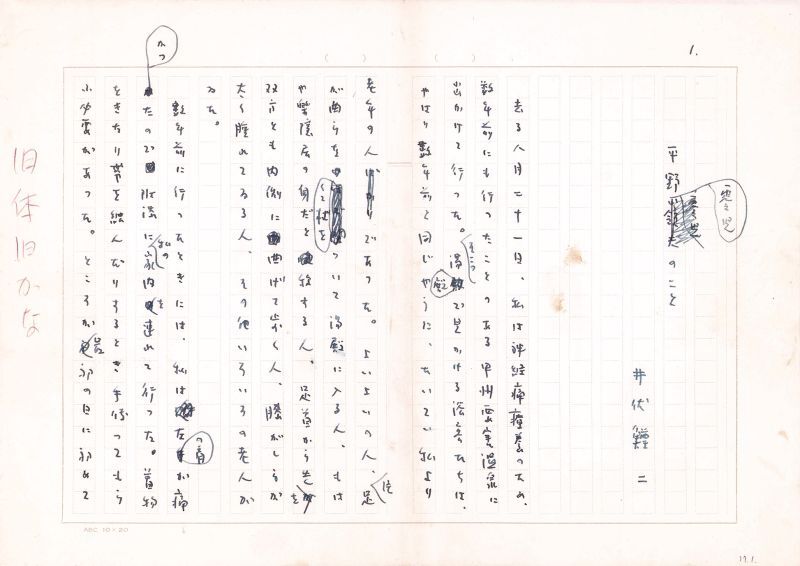 1.
平野零児のこと
井伏鱒二
去る八月二十一日、私は神経痛療養のため、
数年前にも行つたことのある甲州要害温泉に
出かけて行つた。湯殿で見かける浴客たちは、
やはり数年前と同じやうに、たいてい私より
老年の人であつた。よいよいの人、足
が曲らなくて杖をついて湯殿に入る人、もは
や楽隠居の身だと称する人、足首から先を
双方とも内側に曲げて歩く人、膝がしらが
太く腫れてゐる人、その他いろいろの老人が
ゐた。
数年前に行つたときには、私は左の肩が痛
かつたので附添に私の家内を連れて行つた。着物
をきたり帯を結んだりするとき手伝つてもら
ふ必要があつた。ところが最初の日に初めて
旧体旧かな
ABC 10×20